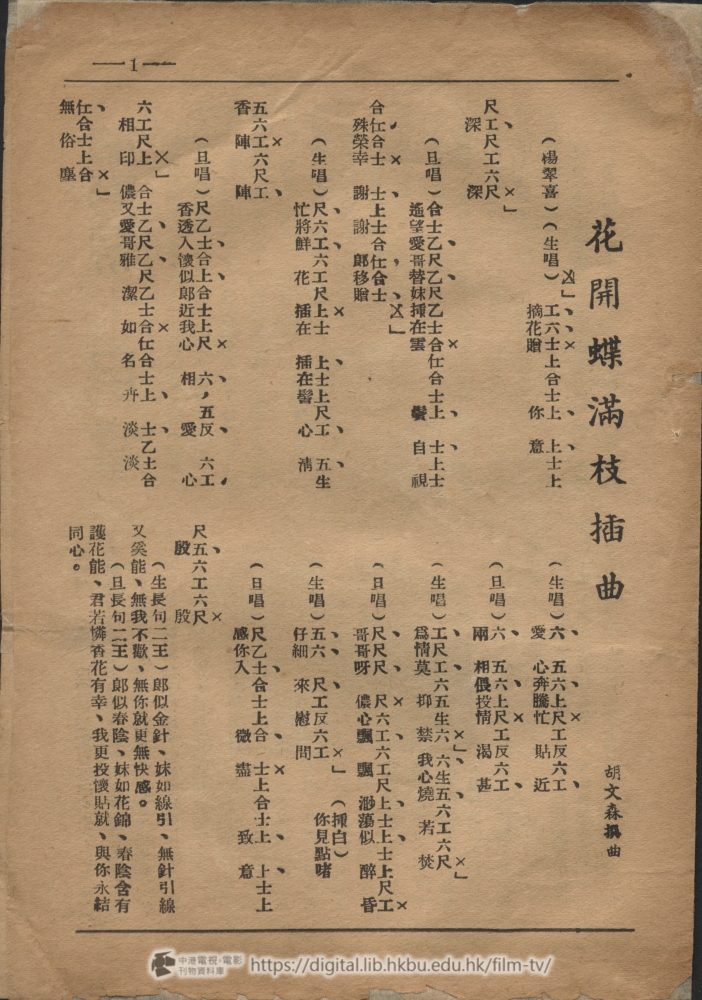 —1—
花開蝶滿枝插曲
胡文森撰曲
（楊翠喜）（生唱）工六士上合士上、上士上
摘花贈你意
尺工尺工六尺
深深
（旦唱）合士乙尺乙尺乙士合仕合士上、士上士
遙望愛哥替妹揷在雲鬢自視
合仕合士士上士合仕合士
殊榮幸謝謝郎移贈
（生唱）尺六工六工尺上士上士上尺工、五生
忙將鮮花插在插在髻心清
五六工六尺工
香陣陣
（旦唱）尺乙士合上合士上尺六，五反六工
香透入懷似郎近我心相愛心
六工尺上合士乙尺乙尺乙士合仕合士上、士乙士合
相印儂又愛哥雅潔如名卉淡淡
仕合士上合
無俗塵
（生唱）六、五六上尺工反六工
愛心奔騰忙貼近
（旦唱）六、五六上尺工反六工、
兩相偎投情渴甚
（生唱）工尺工六五生六六生五六工六尺
爲情莫抑禁我心燒若焚
（旦唱）尺尺尺尺六工六工尺上士上士上尺工
哥哥呀儂心飄飄渺蕩似醉昏
（生唱）五六、尺工反六工（揷白）
仔細來慰問你見點啫
（旦唱）尺乙士合士上合士上合士上、上士上
感你入微盡致意
尺五六工六尺
殷殷
（生長句二王）郎似金針、妹如線引、無針引線
又奚能、無我不歡、無你就更無快感。
（旦長句二王）郎似春陰、妹如花錦、春陰含有
護花能、君若憐香花有幸、我更投懷貼就、與你永結
同心。
中港電視·電影
刊物資料庫
https://digital.lib.hkbu.edu.hk/film-tv/